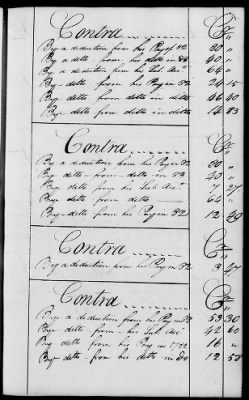 Contra Cr
By a deduction from his Pay of 82 20 "
By - ditto from his ditto in 83 40 "
By a deduction from his Sub. Acc 64 "
By - ditto from his Pay in 82 24 15
By - ditto from ditto in ditto 46 40
By - ditto from ditto in ditto 14 83
Contra Cr
By a deduction from his Pay in 82 20 "
By - ditto from - ditto in 83 40 "
By - ditto from his Sub Acc 7 27
By - ditto from ditto 64 "
By - ditto from his Pay in 82 12 20
Contra Cr
By a deduction from his Pay in 82 3 47
Contra Cr
By a deduction from his Pay in 53 30
By - ditto - from - his Sub Acc 42 60
By - ditto from his Pay in 1782 16 "
By - ditto - from his ditto in Do 12 55